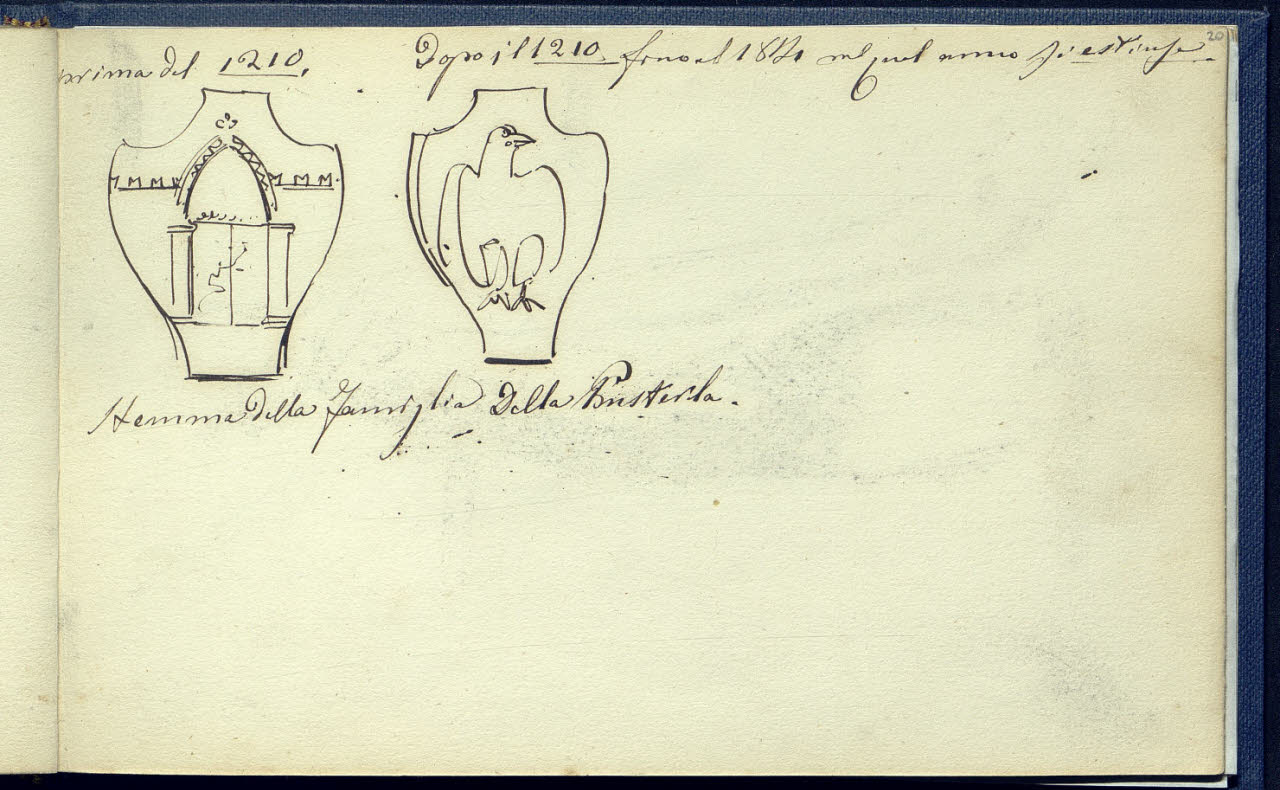 prima del 1210.
Dopo il 1210 fino al 1821 nel quel anno si estinse.
20
Stemma della famiglia Della Pusterla.